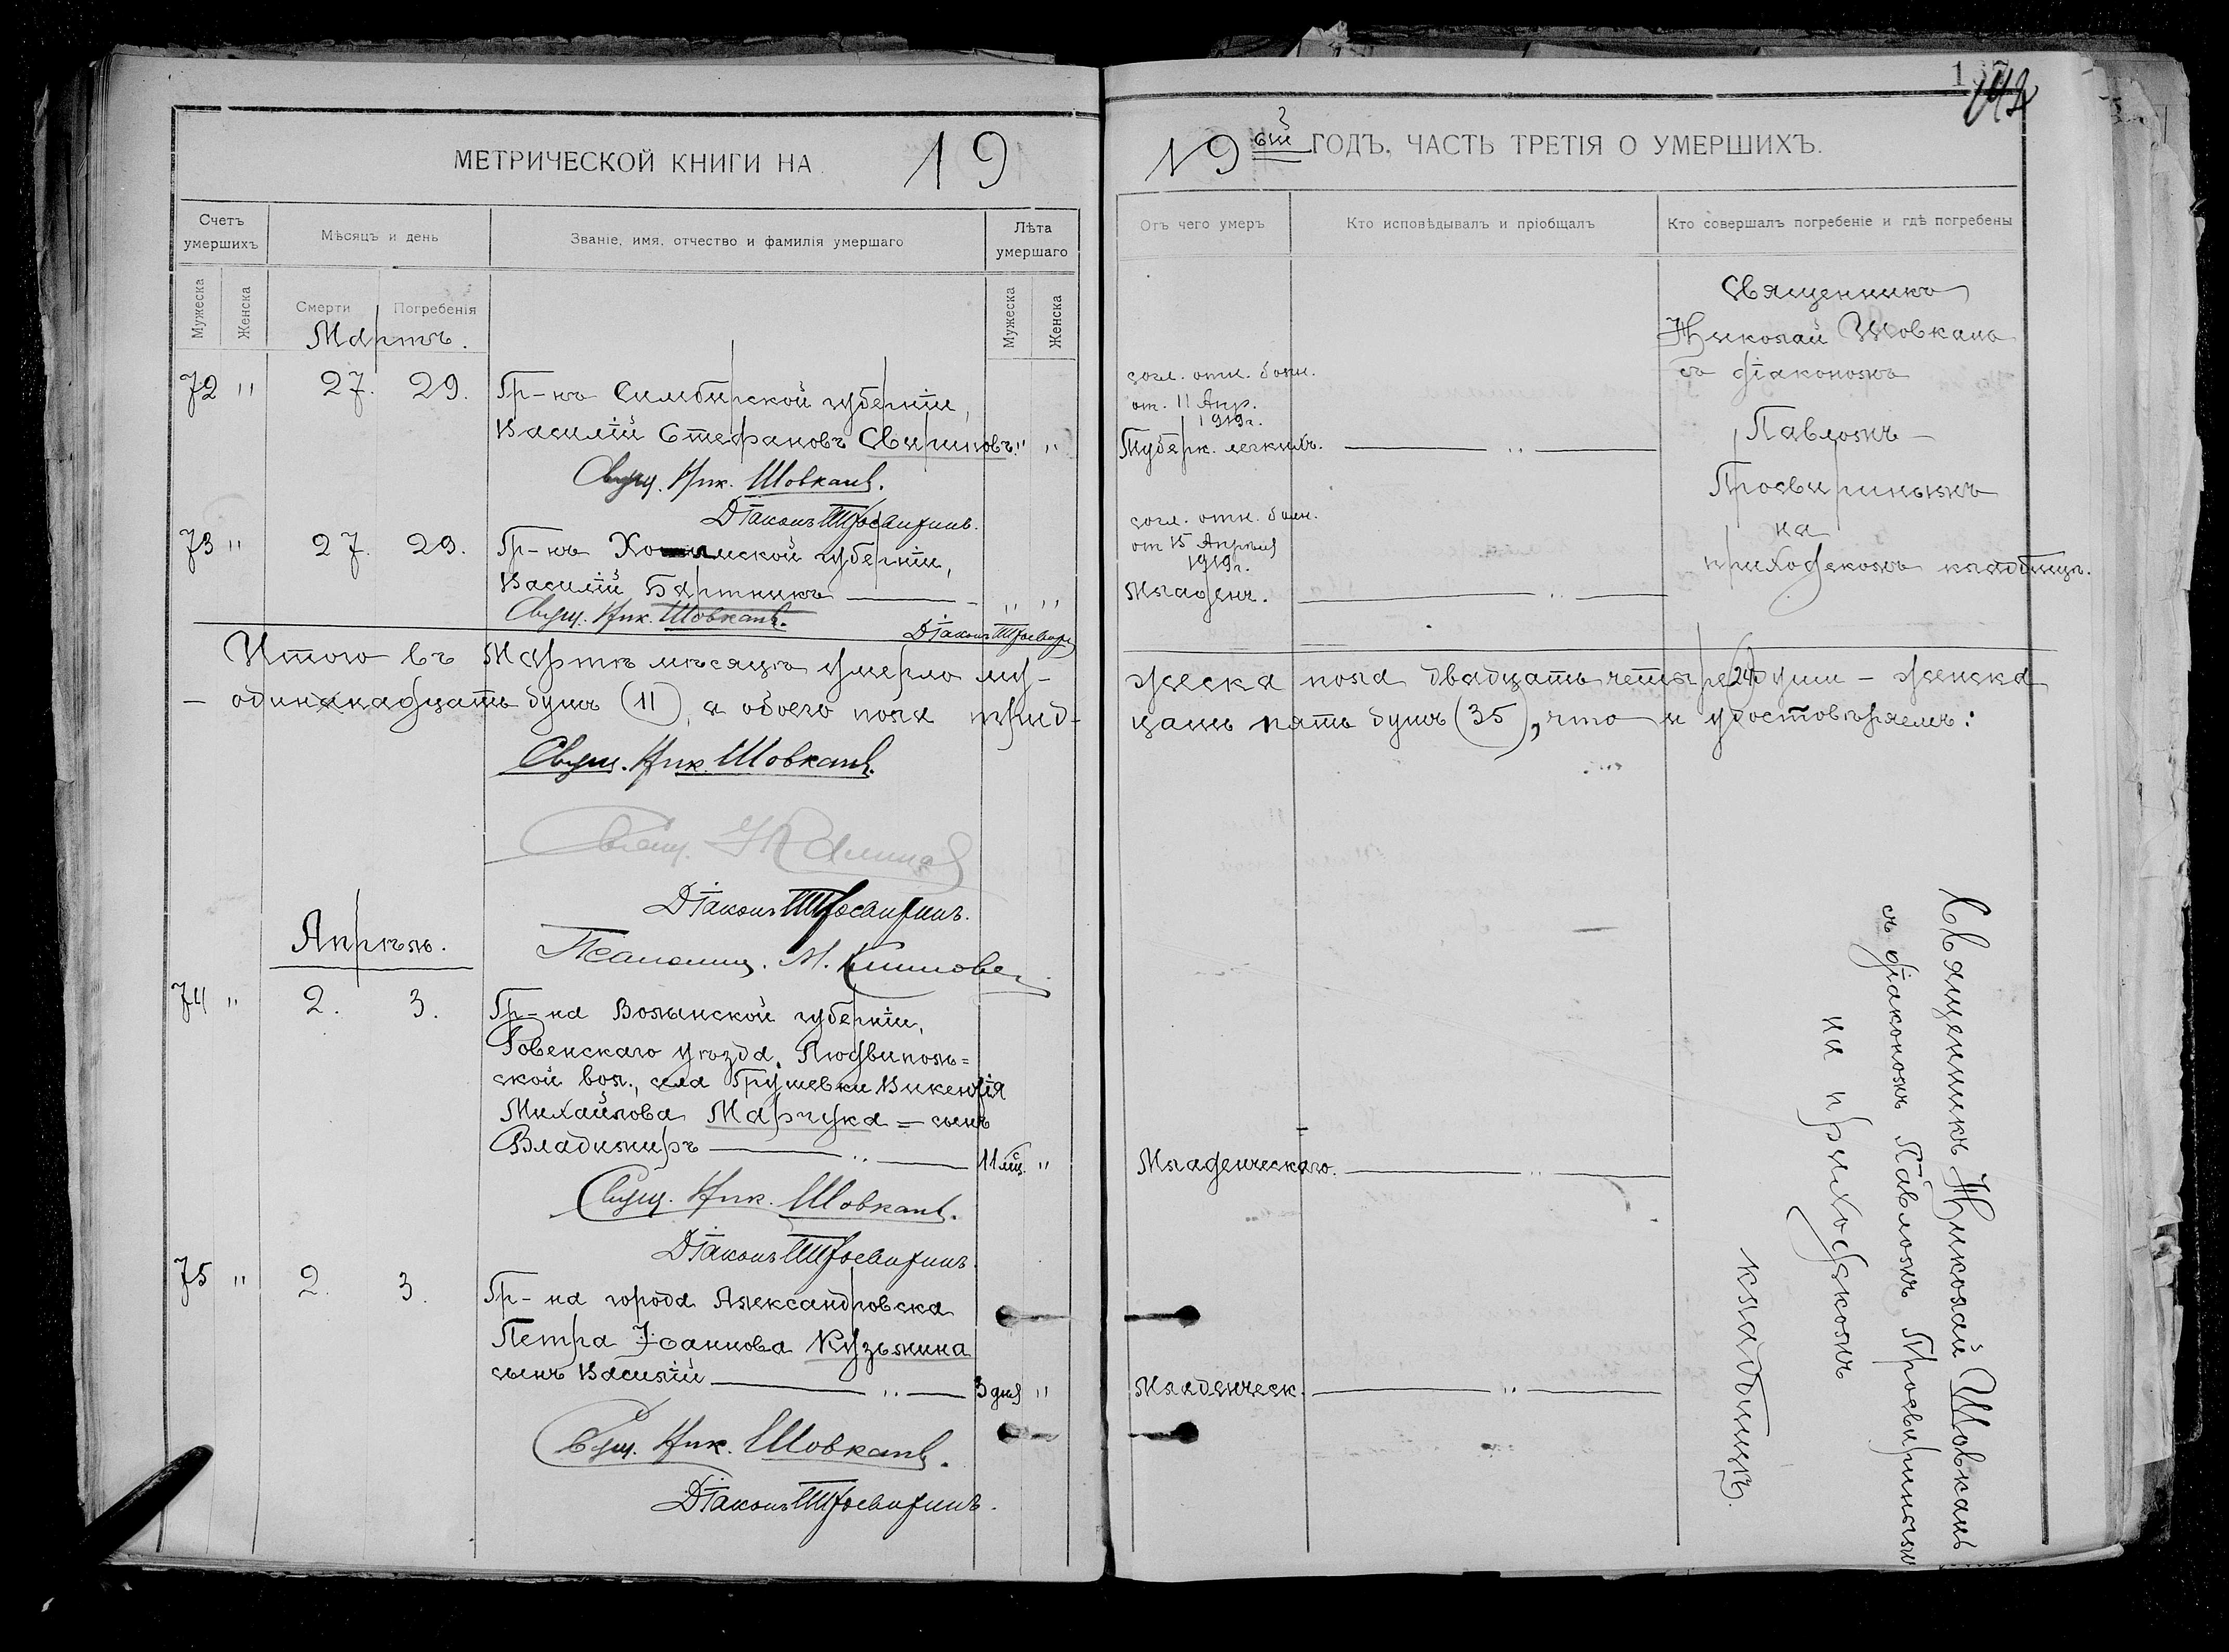 МЕТРИЧЕСКОЙ КНИГИ НА 19
Счетъ умершихъ
Мѣсяцъ и день
Званіе, имя, отчество и фамилія умершаго
Лѣта умершаго
Мужеска
Женска
Смерти
Погребенія
Мужеска
Женска
Мартъ.
72 " 27. 29. Гр-нъ Симбирской губерніи,
Василій Стефановъ Свириновъ. " "
Свящ. Ник. Шовкань.
Діаконъ Просвиринъ.
73 " 27. 29. Гр-нъ губерніи,
Василій Бартникъ — " "
Свящ. Ник. Шовкань.
Діаконъ Просвир
Итого въ Мартѣ мѣсяцѣ умерло му-
— одиннадцать душъ (11), а обоего пола трид-
Свящ. Ник. Шовкань.
Свящ.
Діаконъ Просвиринъ.
Псаломщ. М.
Апрѣль.
74 " 2. 3. Гр-на Волынской губерніи,
Ровенскаго уѣзда, Людвиполь=
ской вол., села Грушевки Викентія
Михайлова Марчука = сынъ
Владимиръ — " — 11 мѣс. "
Свящ. Ник. Шовкань.
Діаконъ Просвиринъ.
75 " 2. 3. Гр-на города Александровска
Петра Іоаннова Кузьмина
сынъ Василій — " — 3 дня "
Свящ. Ник. Шовкань.
Діаконъ Просвиринъ.
19 ый ГОДЪ, ЧАСТЬ ТРЕТІЯ О УМЕРШИХЪ.
Отъ чего умеръ
Кто исповѣдывалъ и пріобщалъ
Кто совершалъ погребеніе и гдѣ погребены
согл. отн. болн.
от. 11 Апр.
1919 г.
Туберк. легкихъ. — " —
согл. отн. болн.
от 15 Апрѣля
1919 г.
Младенч. — " —
Священникъ
Николай Шовкань
съ діакономъ
Павломъ —
Просвиринымъ
на
приходскомъ кладбищѣ.
жеска пола двадцать четыре (24) души — женска
цать пять душъ (35), что и удостовѣряемъ:
Младенческаго. — " —
Младенческ. — " —
Священникъ Николай Шовкань
съ діакономъ Павломъ Просвиринымъ
на приходскомъ
кладбищѣ.